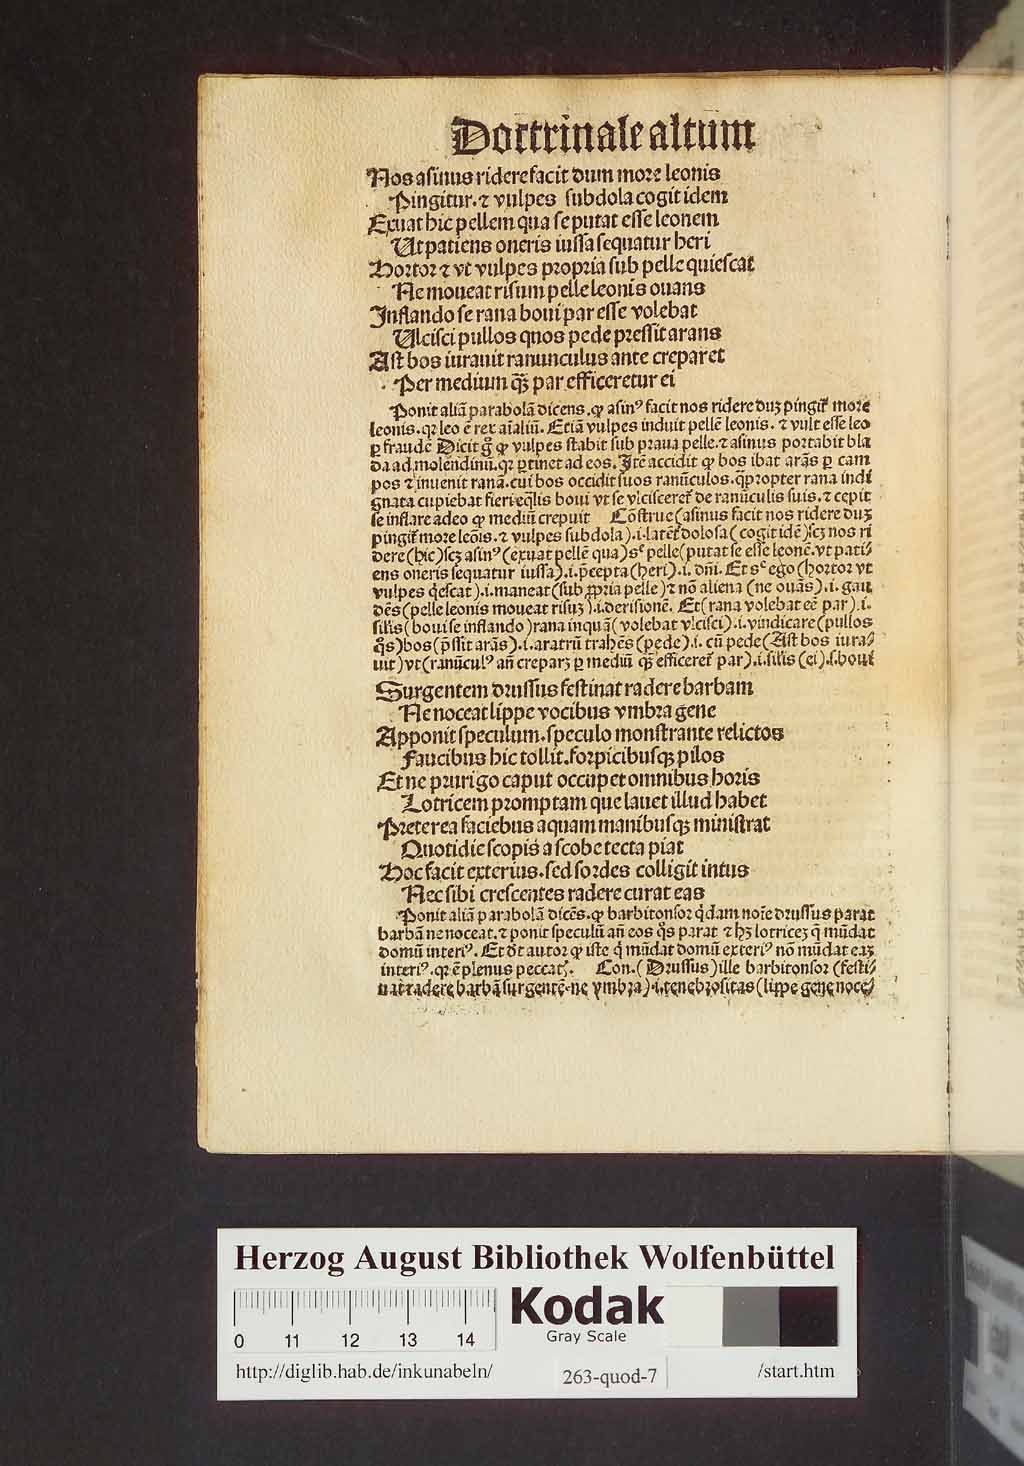 Doctrinale altum
Nos asinus ridere facit dum more leonis
Pingitur. ⁊ vulpes subdola cogit idem
Exuat hic pellem qua se putat esse leonem
Ut patiens oneris iussa sequatur heri
Hortor ⁊ vt vulpes propria sub pelle quiescat
Ne moueat risum pelle leonis ouans
Inflando se rana boui par esse volebat
Ulcisci pullos quos pede pressit arans
Ast bos iurauit ranunculus ante creparet
Per medium qꝫ̃ par efficeretur ei
Ponit aliã parabolã dicens. ꝙ asinꝰ facit nos ridere duꝫ pingit᷑ more
leonis. qꝛ leo ẽ rex aĩaliũ. Etiã vulpes induit pellẽ leonis. ⁊ vult esse leo
ꝑ fraudẽ Dicit g̊ ꝙ vulpes stabit sub praua pelle. ⁊ asinus portabit bla
da ad molendinũ. qꝛ ꝑtinet ad eos. Itẽ accidit ꝙ bos ibat arãs ꝑ cam
pos ⁊ inuenit ranã. cui bos occidit suos ranũculos. q̃propter rana indi
gnata cupiebat fieri eq̃lis boui vt se vlcisceret᷑ de ranũculis suis. ⁊ cepit
se inflare adeo ꝙ mediũ crepuit Cõstrue (asinus facit nos ridere duꝫ
pingit᷑ more leõis. ⁊ vulpes subdola) .i. latẽt᷑ dolosa (cogit idẽ) scꝫ nos ri
dere (hic) scꝫ asinꝰ (exuat pellẽ qua) sᶜ pelle (putat se esse leonẽ. vt pati⸗
ens oneris sequatur iussa) .i. p̃cepta (heri) .i. dñi. Et sᶜ ego (hortor vt
vulpes q̇escat) .i. maneat (sub ꝓpria pelle) ⁊ nõ aliena (ne ouãs) .i. gau
dẽs (pelle leonis moueat risuꝫ) .i. derisionẽ. Et (rana volebat eẽ par) .i.
sil̃is (boui se inflando) rana inquã (volebat vlcisci) .i. vindicare (pullos
q̊s) bos (p̃ssit arãs) .i. aratrũ trahẽs (pede) .i. cũ pede (Ast bos iura⸗
uit) vt (ranũculꝰ añ creparꝫ ꝑ mediũ qꝫ̃ efficeret᷑ par) .i. sil̃is (ei) .s. boui
Surgentem drussus festinat radere barbam
Ne noceat lippe vocibus vmbra gene
Apponit speculum. speculo monstrante relictos
Faucibus hic tollit. forpicibusqꝫ pilos
Et ne prurigo caput occupet omnibus horis
Lotricem promptam que lauet illud habet
Preterea faciebus aquam manibusqꝫ ministrat
Quotidie scopis a scobe tecta piat
Hoc facit exterius. sed sordes colligit intus
Nec sibi crescentes radere curat eas
Ponit aliã parabolã dicẽs. ꝙ barbitonsor q̇dam noĩe drussus parat
barbã ne noceat. ⁊ ponit speculũ añ eos q̊s parat ⁊ hꝫ lotriceꝫ q̃ mũdat
domũ interiꝰ. Et dt̃ autor ꝙ iste q̇ mũdat domũ exteriꝰ nõ mũdat eaꝫ
interiꝰ. qꝛ ẽ plenus peccatꝭ. Con. (Drussus) ille barbitonsor (festi⸗
nat radere barbã surgentẽ. ne vmbra) .i. tenebrositas (lippe gene noce⸗
Herzog August Bibliothek Wolfenbüttel
0 11 12 13 14
Kodak
Gray Scale
http://diglib.hab.de/inkunabeln/ 263-quod-7 /start.htm